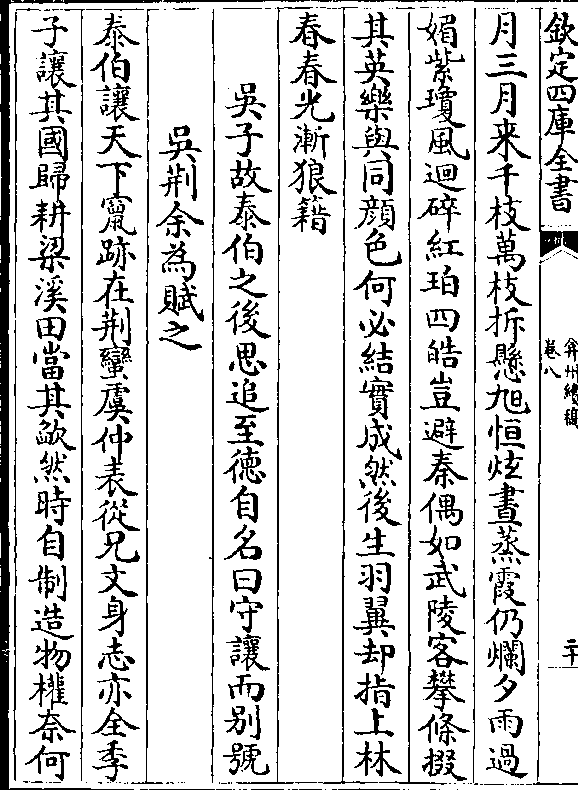 欽定四庫全書
弇州續稿
卷八
二十
月三月来千枝萬枝拆懸旭恒炫晝蒸霞仍爛夕雨過
媚紫瓊風迴碎紅珀四皓豈避秦偶如武陵客攀條掇
其英樂與同顔色何必結實成然後生羽翼却指上林
春春光漸狼籍
吳子故泰伯之後思追至徳自名曰守讓而别號
吳荆余為賦之
泰伯讓天下竄跡在荆蠻虞仲表從兄文身志亦全季
子讓其國歸耕梁溪田當其歈然時自制造物權奈何